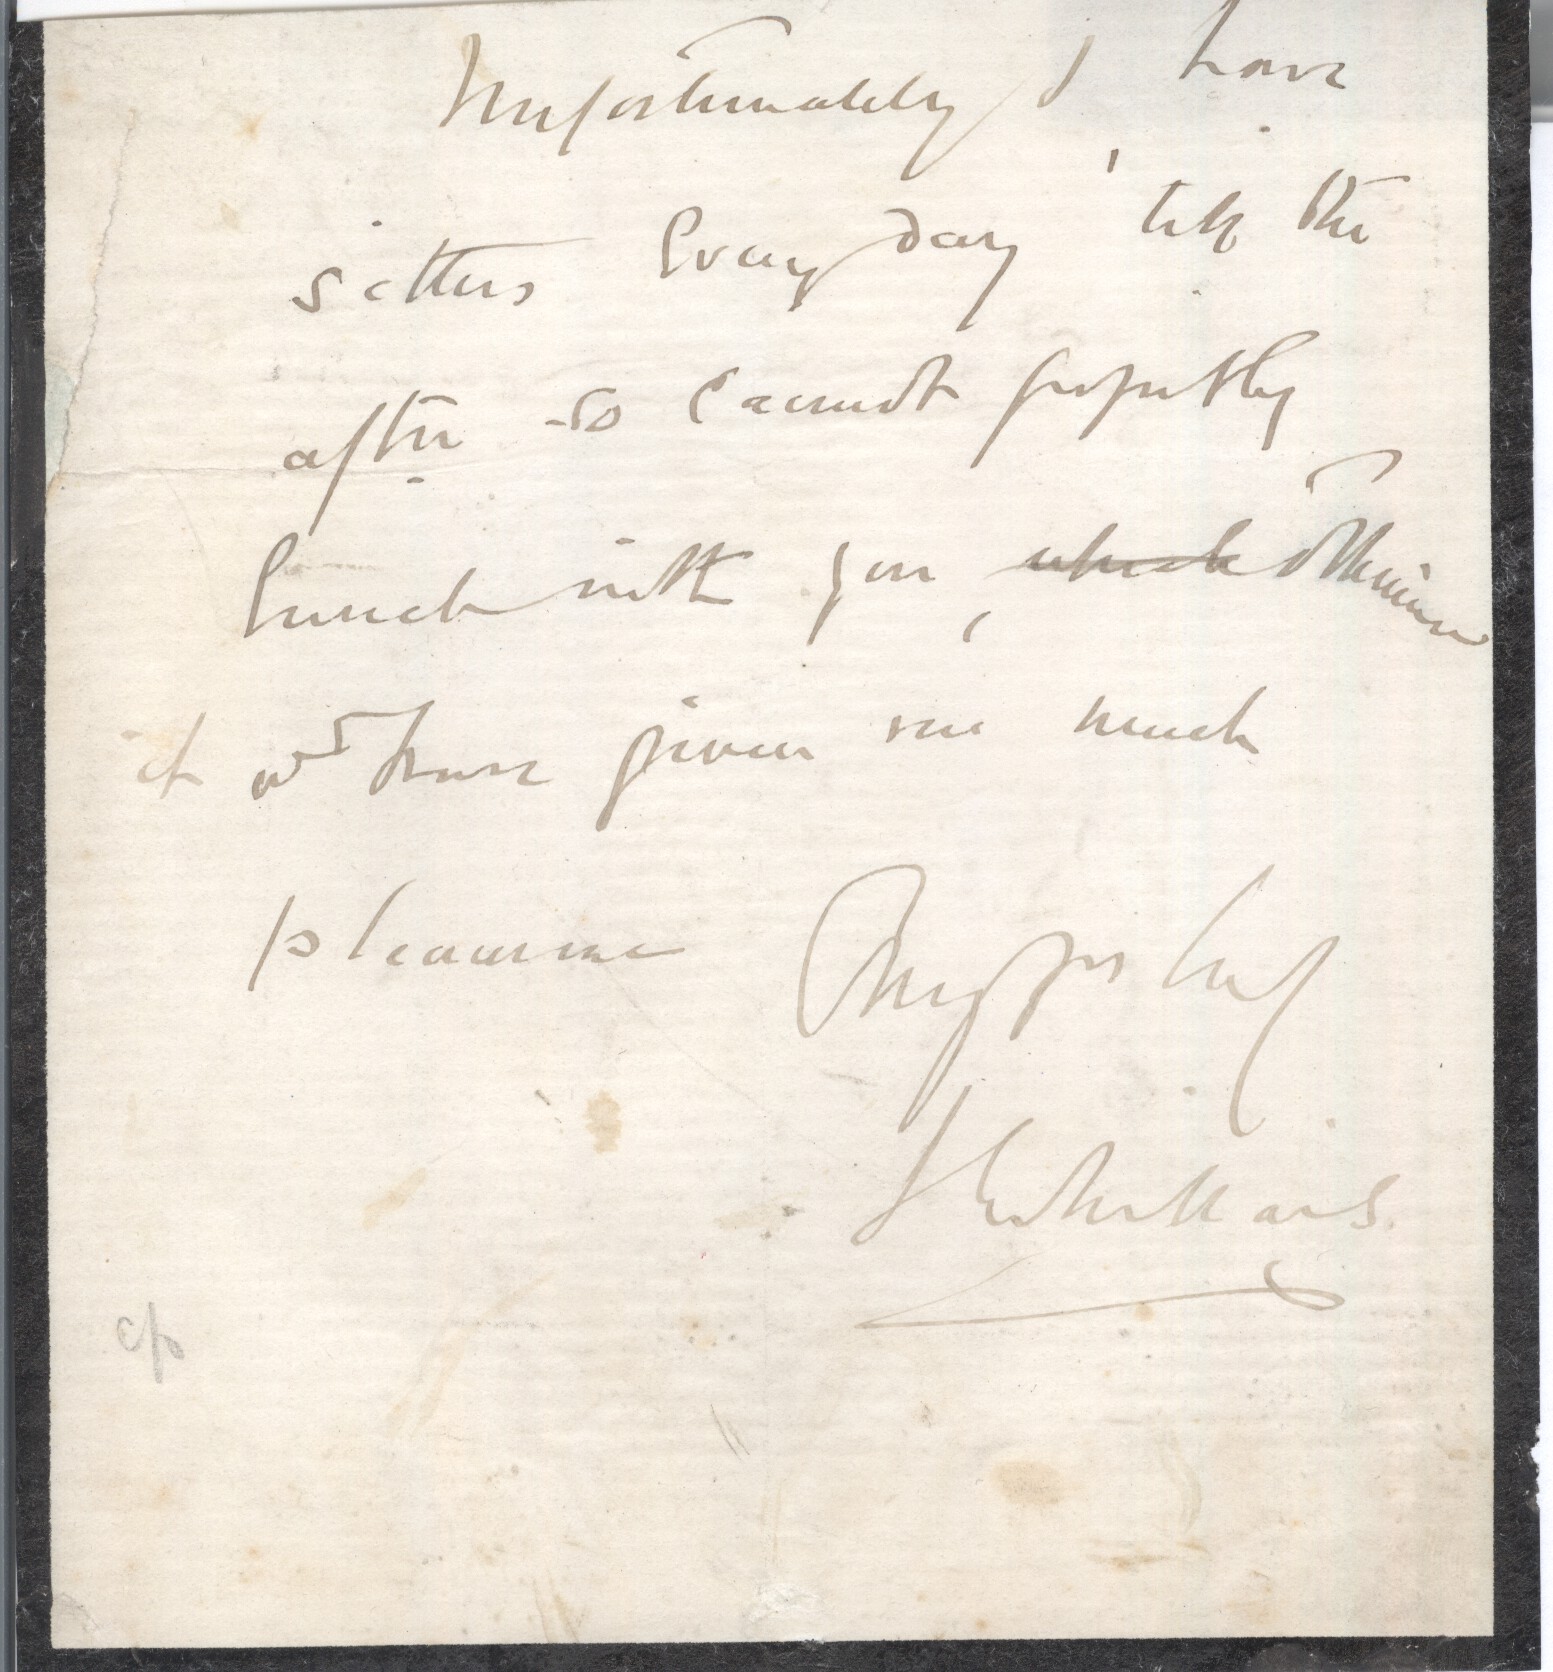 Unfortunately I have
sitters every day 'till the
after so cannot possibly
lunch with you, which otherwise
it wd have given me much
pleasure
J E Millais
c/o